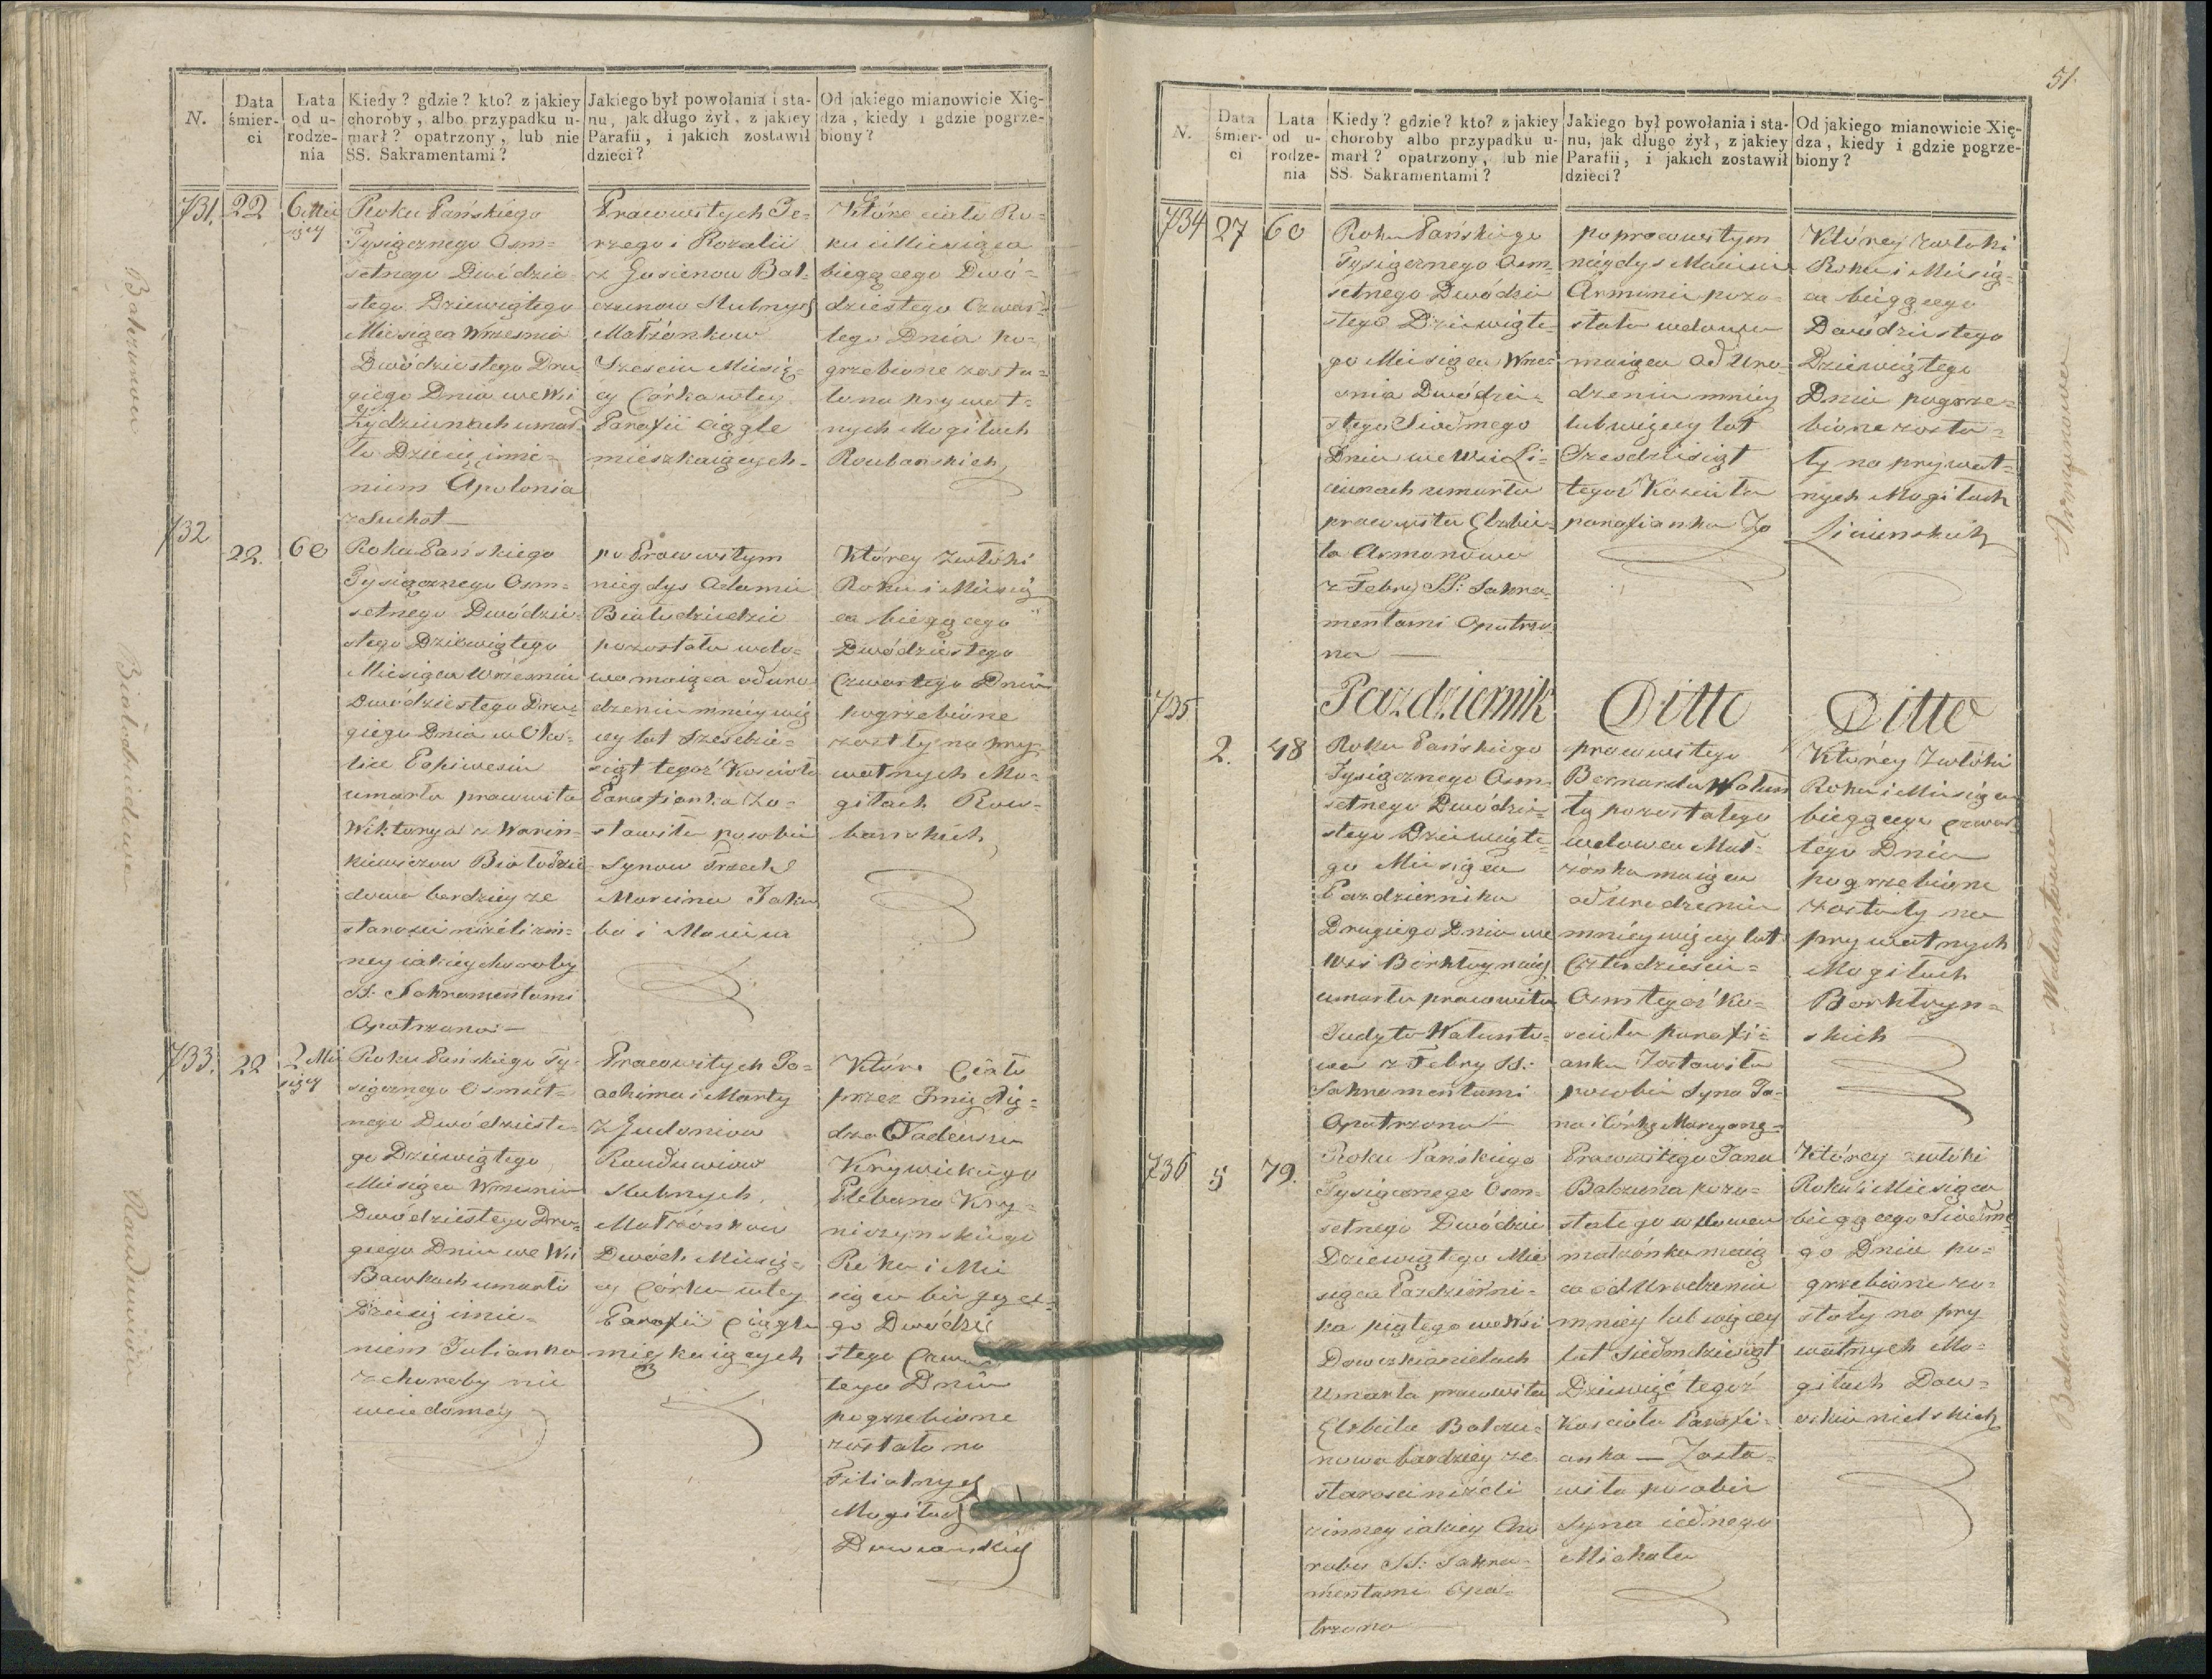 N.
Data
śmier-
ci
Lata
od u-
rodze-
nia
Kiedy? gdzie? kto? z jakiey
choroby, albo przypadku u-
marł? opatrzony, lub nie
SS. Sakramentami?
Jakiego był powołania i sta-
nu, jak długo żył, z jakiey
Parafii, i jakich zostawił
dzieci?
Od jakiego mianowicie Xię-
dza, kiedy i gdzie pogrze-
biony?
731.
22
6 Mie
sięcy
Roku Pańskiego
Tysiącznego Osm=
setnego Dwódzie=
stego Dziewiątego
Miesiąca Wrzesnia
Dwódziestego Dru=
giego Dnia we Wsi
umar=
ło Dziecię imie=
niem Apolonia
z Suchot —
Rozalii
czunow Slubnych
Małżonkow
Szesciu Miesię=
cy Córka w tey
Parafii ciągle
mieszkaiących
Które ciało Ro=
ku i Miesiąca
bieżącego Dwó=
dziestego Czwar=
tego Dnia po=
grzebione zosta=
ło na prywat=
nych Mogiłach
Balczunowa
732
22.
60
Roku Pańskiego
Tysiącznego Osm=
setnego Dwódzie=
stego Dziewiątego
Miesiąca Wrzesnia
Dwódziestego Dru=
giego Dnia w Oko=
licy
umarła pracowita
Wiktorya z
dowa bardziey ze
starosci niżeli z in=
ney iakiey choroby
SS. Sakramentami
Opatrzona —
po Pracowitym
niegdys Adamie
pozostała wdo=
wa maiąca od uro
dzenia mniey wię
cey lat Szescdzie=
siąt tegoż Koscioła
Parafianka Zo=
stawiła po sobie
Synow Trzech
Marcina Jaku
ba i Macieia
Którey zwłoki
Roku i Miesią
ca bieżącego
Dwódziestego
Czwartego Dnia
pogrzebione
zostały na pry=
watnych Mo=
giłach
733.
22
2 Mie
sięcy
Roku Pańskiego Ty=
siącznego Osmset=
nego Dwódzieste=
go Dziewiątego
Miesiąca Wrzesnia
Dwódziestego Dru=
giego Dnia we Wsi
umarło
Dziecię imie=
niem Julianna
z choroby nie
wiadomey
Pracowitych Jo=
achima i Marty
Slubnych
Małżonkow
Dwóch Miesię=
cy Córka w tey
Parafii ciągle
mieszkaiących
Które Ciało
przez Imię Xię=
dza Tadeusza
Krywickiego
Plebana
Roku i Mie
siąca bieżące=
go Dwódzie
stego Czwar
tego Dnia
pogrzebione
zostało na
Filialnych
Mogiłach
51.
N.
Data
śmier-
ci
Lata
od u-
rodze-
nia
Kiedy? gdzie? kto? z jakiey
choroby albo przypadku u-
marł? opatrzony, lub nie
SS. Sakramentami?
Jakiego był powołania i sta-
nu, jak długo żył, z jakiey
Parafii, i jakich zostawił
dzieci?
Od jakiego mianowicie Xię-
dza, kiedy i gdzie pogrze-
biony?
734
27
60
Roku Pańskiego
Tysiącznego Osm=
setnego Dwódzie
stego Dziewiąte=
go Miesiąca Wrze=
snia Dwódzie=
stego Siodmego
Dnia we Wsi Li=
ciunach umarła
pracowita Elzbie=
ta
z Febry SS: Sakra=
mentami Opatrzo=
na —
po pracowitym
niegdys Macieiu
pozo=
stała wdowa
maiąca od Uro=
dzenia mniey
lub więcey lat
Szescdziesiąt
tegoż Koscioła
parafianka
Którey zwłoki
Roku i Miesią=
ca bieżącego
Dwódziestego
Dziewiątego
Dnia pogrze=
bione zosta=
ły na prywat=
nych Mogiłach
Liciunskich
735
Pazdziernik
Ditto
Ditto
2.
48
Roku Pańskiego
Tysiącznego Osm=
setnego Dwódzie=
stego Dziewiąte=
go Miesiąca
Pazdziernika
Drugiego Dnia we
Wsi
umarła pracowita
Judyta
wa z Febry SS:
Sakramentami
Opatrzona —
pracowitego
Bernarda
pozostałego
wdowca Mał=
żonka maiąca
od Urodzenia
mniey więcey lat
Czterdziescie=
Osm tegoż Ko=
scioła parafi=
anka Zostawiła
po sobie Syna Ja=
na i Córkę Maryannę
Którey Zwłoki
Roku i Miesiąca
bieżącego Czwar=
tego Dnia
pogrzebione
zostały na
prywatnych
Mogiłach
736
5
79.
Roku Pańskiego
Tysiącznego Osm=
setnego Dwódzie
Dziewiątego Mie
siąca Pazdzierni=
ka piątego we Wsi
Umarła pracowita
Elzbieta Balczu=
nowa bardziey ze
starosci niżeli
z inney iakiey Cho
roby SS: Sakra=
mentami Opa=
trzona
Pracowitego Jana
Balczuna pozo=
stałego wdowca
małżonka maią
ca od Urodzenia
mniey lub więcey
lat Siedmdziesiąt
Dziewięć tegoż
Koscioła Parafi=
anka — Zosta=
wiła po sobie
Syna iednego
Michała
Którey zwłoki
Roku i Miesiąca
bieżącego Siodme
go Dnia po=
grzebione zo=
stały na pry
watnych Mo=
giłach
Balczunowa